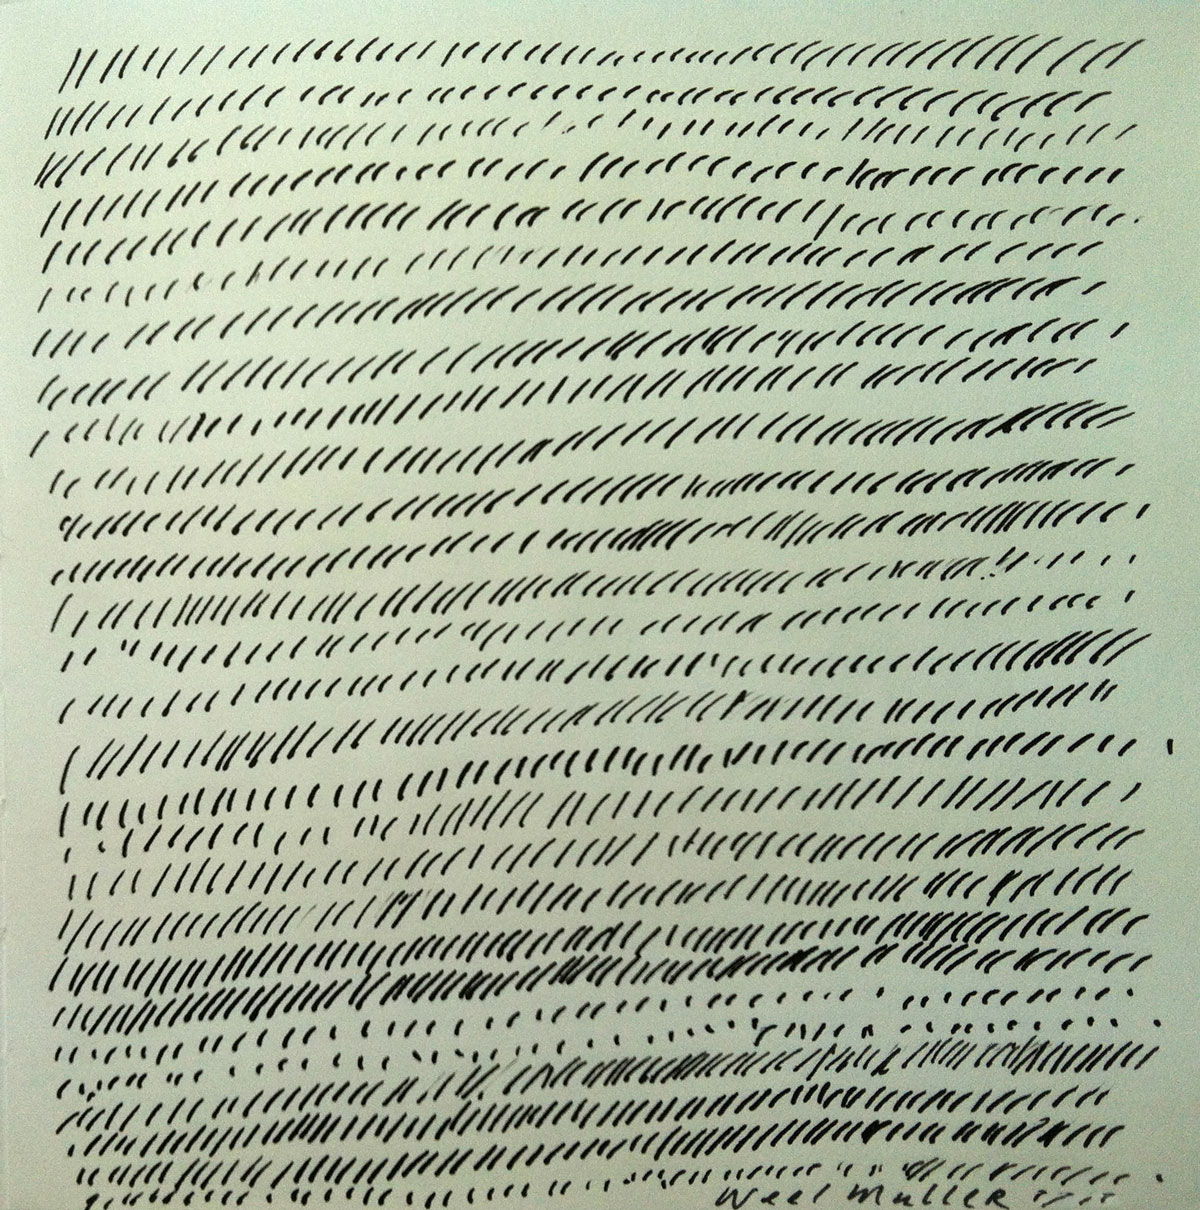 Weel Muller